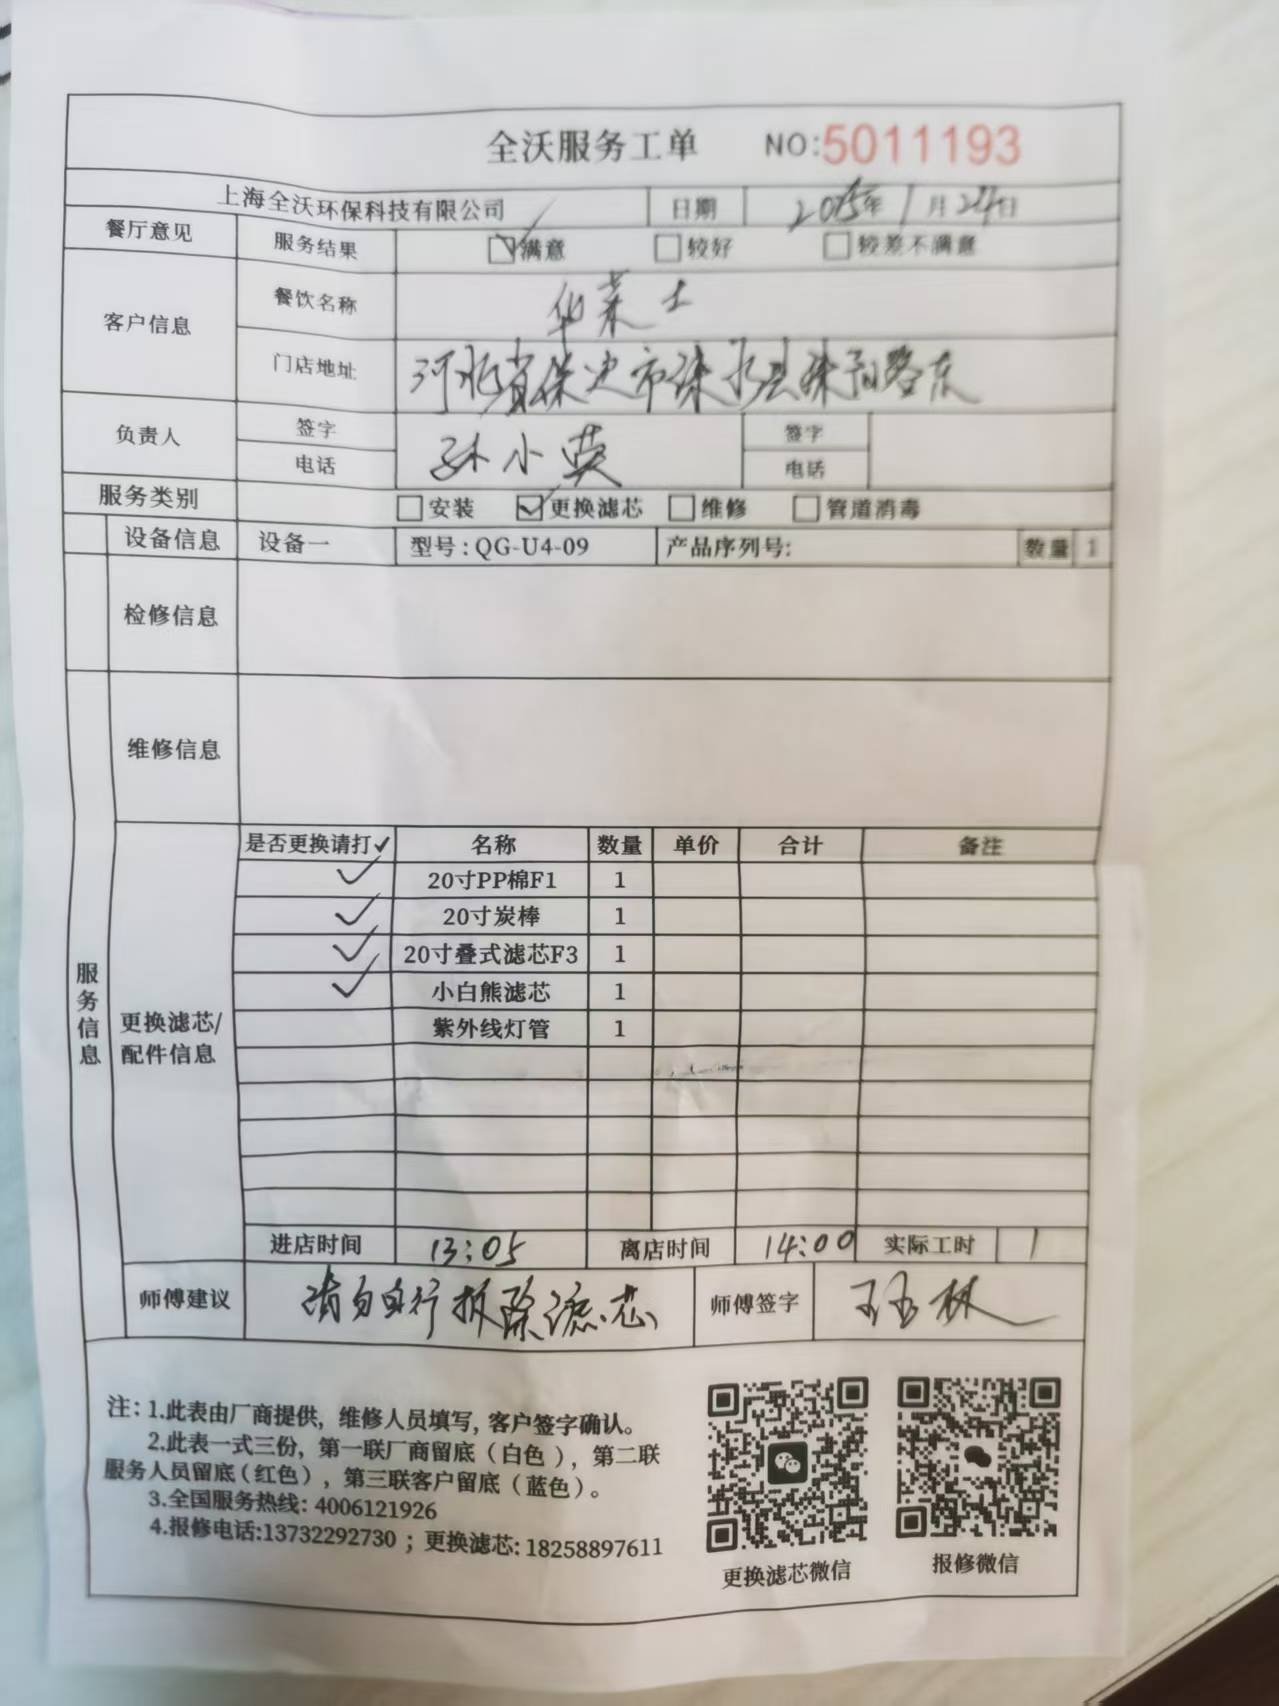 全沃服务工单 NO:5011193
上海全沃环保科技有限公司 日期 2025年1月24日
餐厅意见 服务结果 满意 较好 较差不满意
客户信息 餐饮名称 华莱士
门店地址 河北省保定市涞水县涞阳路东
负责人 签字 孙小英 签字
电话 电话
服务类别 安装 更换滤芯 维修 管道消毒
设备信息 设备一 型号:QG-U4-09 产品序列号: 数量 1
检修信息
维修信息
服务信息
更换滤芯/
配件信息
是否更换请打✓ 名称 数量 单价 合计 备注
✓ 20寸PP棉F1 1
✓ 20寸炭棒 1
✓ 20寸叠式滤芯F3 1
✓ 小白熊滤芯 1
紫外线灯管 1
进店时间 13:05 离店时间 14:00 实际工时 1
师傅建议 请勿自行拆除滤芯 师傅签字
注: 1.此表由厂商提供, 维修人员填写, 客户签字确认。
2.此表一式三份, 第一联厂商留底(白色), 第二联
服务人员留底(红色), 第三联客户留底(蓝色)。
3.全国服务热线: 4006121926
4.报修电话:13732292730 ; 更换滤芯: 18258897611
更换滤芯微信 报修微信